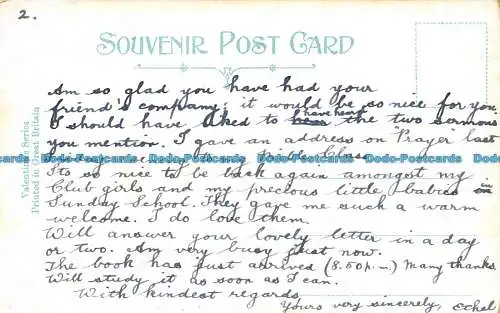 2.
SOUVENIR POST CARD
Am so glad you have had your
friend's company; it would be so nice for you.
I should have liked to have heard the two sermons
you mention. I gave an address on "Prayer" last
Dodo-Postcards Dodo-Postcards Dodo-Postcards Dodo-Postcards Dodo-Postcards Dodo-Postcards
Its so nice to be back again amongst my
Club girls and my precious little babies in
Sunday School. They gave me such a warm
welcome. I do love them.
Will answer your lovely letter in a day
or two. Am very busy just now.
The book has just arrived (8.50 p.m.) Many thanks.
Will study it as soon as I can.
With kindest regards
Yours very sincerely, Ethel
Valentine's Series
Printed in Great Britain